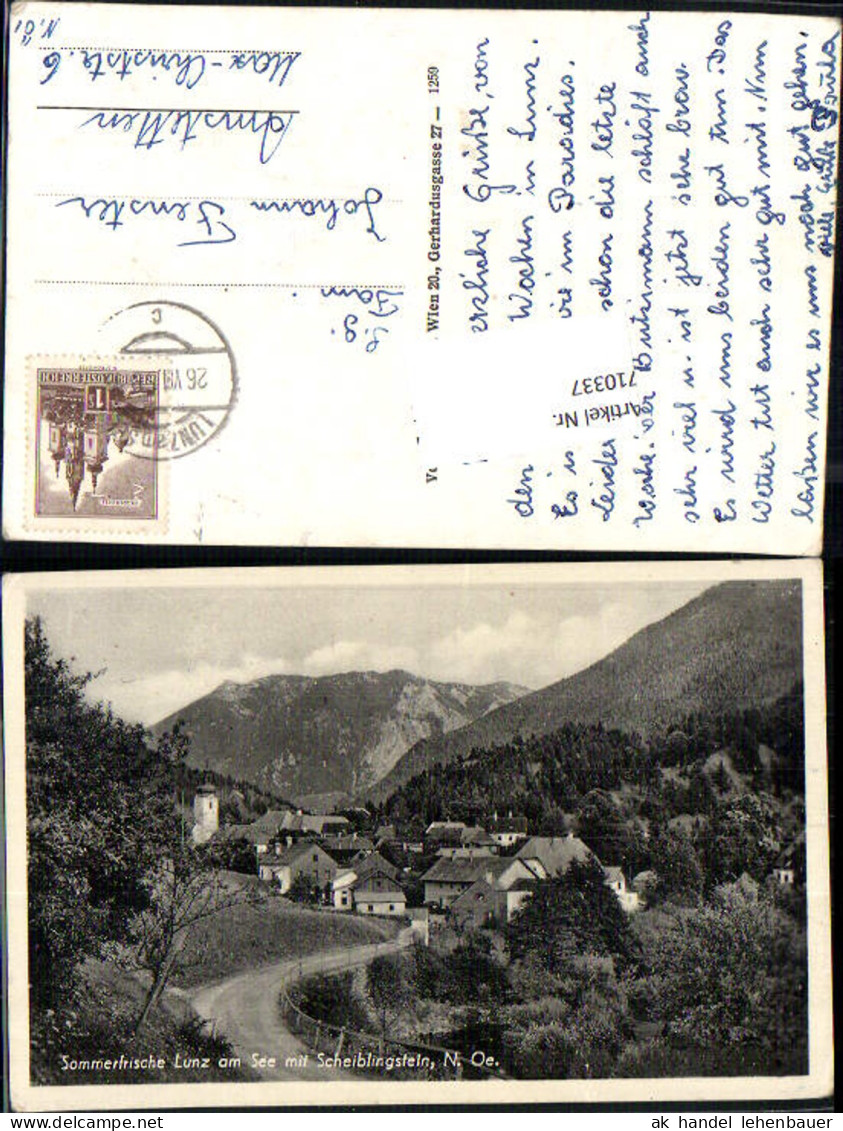 erzliche Grüße, von
den Wochen in Lunz.
Es is wie im Paradies.
Leider schon die letzte
Woche. Der Butzimann schläft auch
sehr viel u. ist jetzt sehr brav.
Es wird uns beiden gut tun. Das
Wetter tut auch sehr gut mit. Nun
laßen wir es uns noch gut gehen.
viele Grüße Paula
Wien 20., Gerhardusgasse 27 — 1259
Artikel Nr.
710337
Fam.
Johann Fenster
Amstetten
Max-Christstr. 6
N.Ö.
REPUBLIK ÖSTERREICH
1 S
26. VIII
LUNZ
c
Sommerfrische Lunz am See mit Scheiblingstein, N. Oe.
ak handel lehenbauer